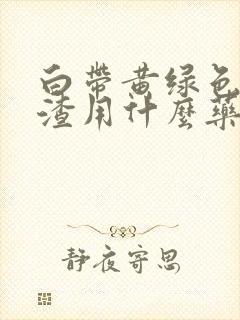 白帶黄绿色
渣用什麼藥
静夜寄思